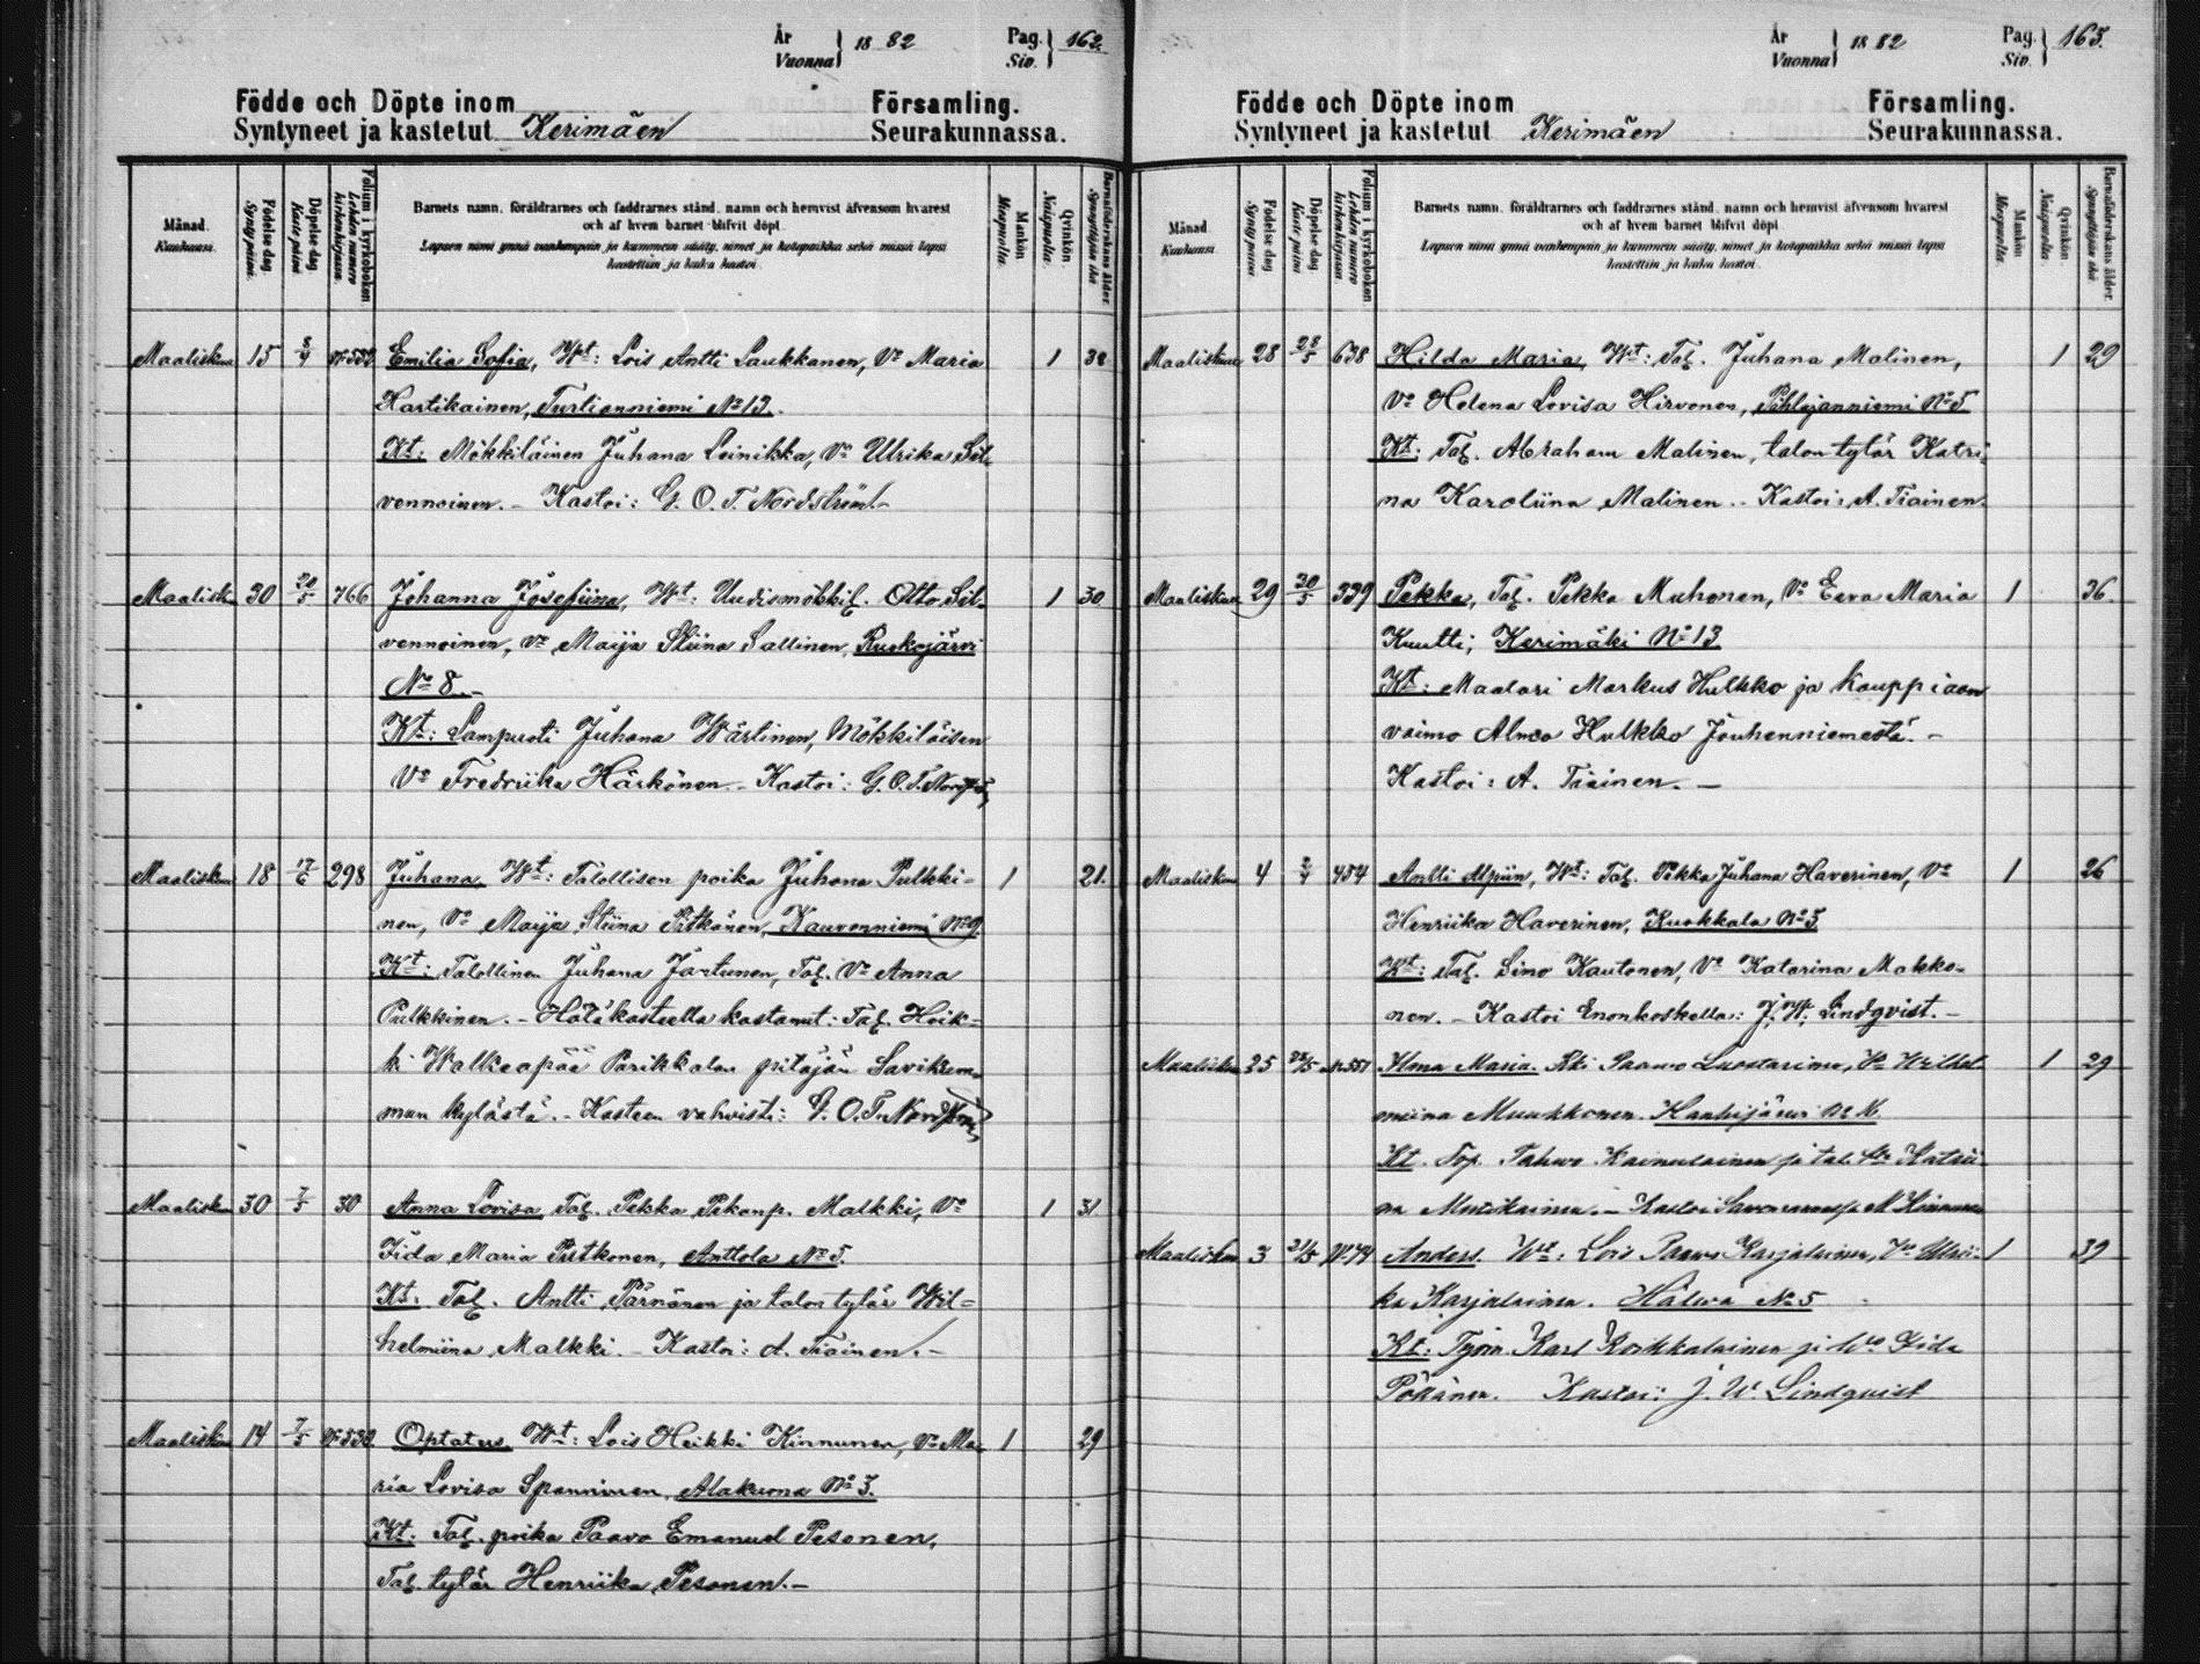 År
Vuonna } 1882
Pag.
Siv. } 162.
Födde och Döpte inom Församling.
Syntyneet ja kastetut Kerimäen Seurakunnassa.
Månad. Kuukausi.
Födelse dag Syntypäivä.
Döpelse dag Kastepäivä
Folium i kyrkoboken Lehden numero kirkonkirjassa.
Barnets namn, föräldrarnes och faddrarnes stånd, namn och hemvist äfvensom hvarest
och af hvem barnet blifvit döpt.
Lapsen nimi ynnä vanhempain ja kummein sääty, nimet ja kotopaikka sekä missä lapsi
kastettiin ja kuka kastoi.
Mankön Miespuolia.
Qvinkön. Naispuolia.
Barnaföderskans ålder. Synnyttäjän ikä
Maalisk. 15 8/4 Emilia Sofia, Wt: Lois Antti Laukkanen, Vo Maria 1 38
Hartikainen, Turtianniemi No 13.
Kt: Mökkiläinen Juhana Leinikka, Vo Ulrika Sil-
vennoinen. - Kastoi: G. O. T. Nordström. -
Maalisk 30 20/5 766 Johanna Josefiina, Wt: Uudismökkil. Otto Sil- 1 30
vennoinen, Vo Maija Stiina Sallinen, Ruokojärvi
No 8. -
Kt: Lampuoti Juhana Wärtinen, Mökkiläisen
Vo Fredriika Härkönen. - Kastoi: G. O. T. Nordst.
Maalisk 18 17/6 298 Juhana Wt: Talollisen poika Juhana Pulkki- 1 21.
nen, Vo Maija Stiina Pitkänen, Kauvonniemi No 9.
Kt: Talollinen Juhana Jantunen, Tal. Vo Anna
Pulkkinen. - Hätäkasteella kastanut: Tal. Heik-
ki Walkeapää Parikkalan pitäjän Savikum-
mun kylästä. - Kasteen vahvisti: G. O. T. Nordström
Maalisk 30 7/5 30 Anna Lovisa Tal. Pekka Pekanp. Malkki, Vo 1 31
Iida Maria Pitkonen, Anttola No 5.
Kt: Tal. Antti Pärnänen ja talon tytär Wil-
helmiina Malkki. - Kastoi: A. Tiainen. -
Maalisk 14 7/5 Optatus Wt: Lois Heikki Kinnunen, Vo Ma- 1 29
ria Lovisa Spänninen, Alakuona No 3.
Kt: Tal. poika Paavo Emanuel Pesonen,
Tal. tytär Henriika Pesonen. -
År
Vuonna } 1882
Pag.
Siv. } 163.
Födde och Döpte inom Församling.
Syntyneet ja kastetut Kerimäen Seurakunnassa.
Månad Kuukausi
Födelse dag Syntypäivä
Döpelse dag Kastepäivä
Folium i kyrkoboken Lehden numero kirkonkirjassa.
Barnets namn, föräldrarnes och faddrarnes stånd, namn och hemvist äfvensom hvarest
och af hvem barnet blifvit döpt
Lapsen nimi ynnä vanhempain ja kummein sääty, nimet ja kotopaikka sekä missä lapsi
kastettiin ja kuka kastoi.
Mankön Miespuolia.
Qvinkön Naispuolia.
Barnaföderskans ålder. Synnyttäjän ikä
Maaliskuu 28 28/5 638 Hilda Maria, Wt: Tal. Juhana Malinen, 1 29
Vo Helena Lovisa Hirvonen, Pihlajanniemi No 5
Kt: Tal. Abraham Malinen, talon tytär Katri-
na Karoliina Malinen. - Kastoi: A. Tiainen.
Maaliskuu 29 30/5 339 Pekka, Tal. Pekka Muhonen, Vo Eeva Maria 1 36.
Kuutti; Kerimäki No 13.
Kt: Maalari Markus Hulkko ja kauppiaan
vaimo Alma Hulkko Jouhenniemestä. -
Kastoi: A. Tiainen. -
Maaliskuu 4 2/4 454 Antti Alpiin, Wt: Tal. Pekka Juhana Haverinen, Vo 1 26
Henriika Haverinen, Ruokkala No 5
Kt: Tal. Simo Kautonen, Vo Katarina Makko-
nen. - Kastoi Enonkoskella: J. W. Lindqvist. -
Maalisk 25 28/5 Alma Maria. Paavo Luostarinen, Vo Wilhel-
miina Muukkonen. Hanhijärvi No 16. 1 29
Kt. Tahvo Kainulainen ja tal. Vo Katrii-
na Mustikainen. - Kastoi
Maaliskuu 3 21/5 Anders. Wt: Lois Paavo Karjalainen, Vo Ulrii- 1 39
ka Karjalainen. Hälvä No 5
Kt: Työm. Karl Koikkalainen ja Vo Iida
Pöllänen. Kastoi: J. W. Lindquist